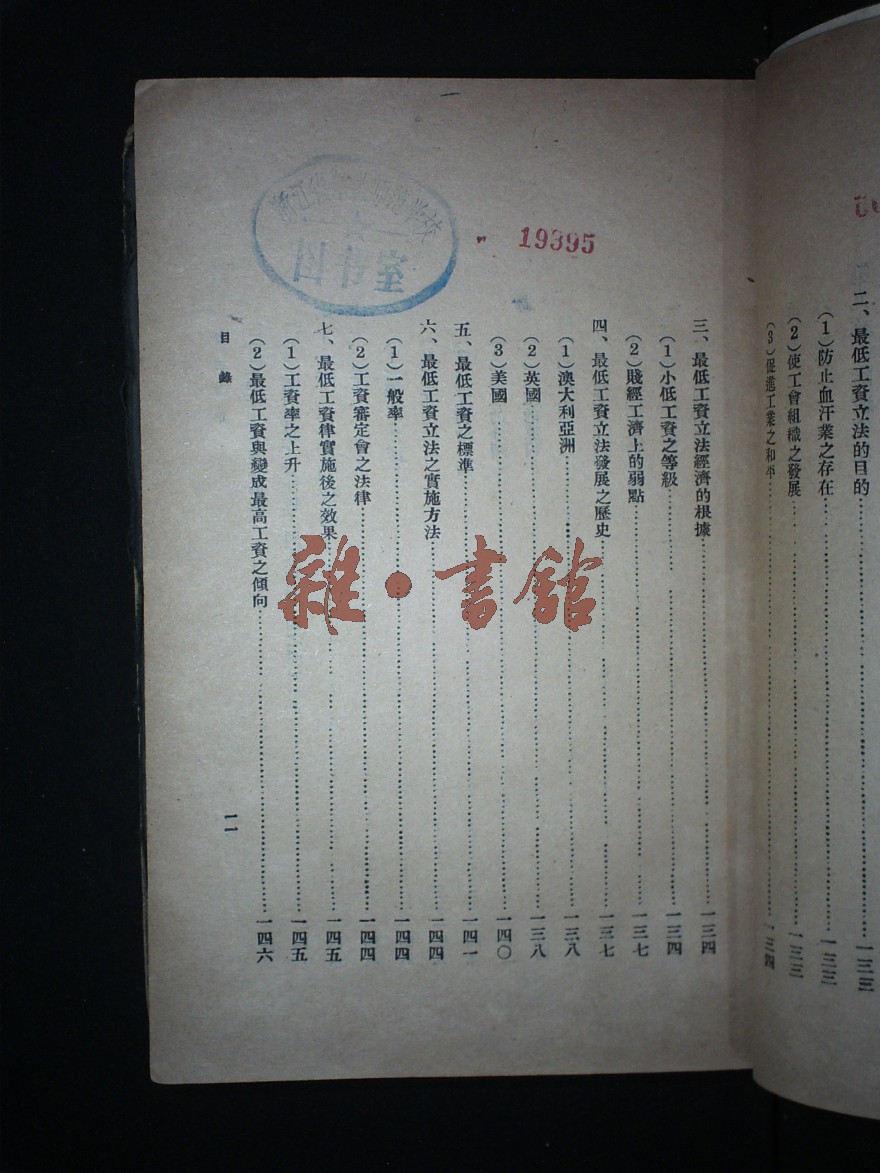 二、最低工資立法的目的⋯⋯一三三
(1)防止血汗業之存在⋯⋯一三三
(2)使工會組織之發展⋯⋯一三三
(3)促進工業之和平⋯⋯一三四
三、最低工資立法經濟的根據⋯⋯一三四
(1)小低工資之等級⋯⋯一三四
(2)賤經工濟上的弱點⋯⋯一三七
四、最低工資立法發展之歷史⋯⋯一三七
(1)澳大利亞洲⋯⋯一三八
(2)英國⋯⋯一三八
(3)美國⋯⋯一四〇
五、最低工資之標準⋯⋯一四一
六、最低工資立法之實施方法⋯⋯一四四
(1)一般率⋯⋯一四四
(2)工資審定會之法律⋯⋯一四四
七、最低工資律實施後之效果⋯⋯一四五
(1)工資率之上升⋯⋯一四五
(2)最低工資與變成最高工資之傾向⋯⋯一四六
目錄
一一
19395
图书室
雜·書館